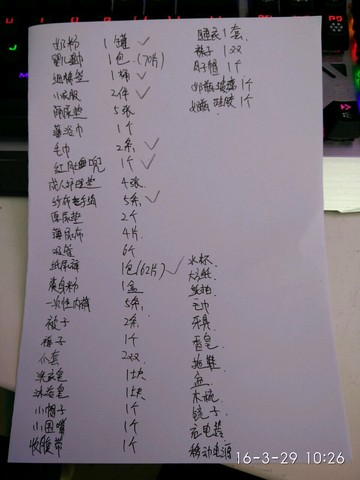 奶粉 1罐 ✓
婴儿 1包 (70片)
纸 1桶 ✓
小衣服 2件 ✓
隔尿垫 5张
藻浴巾 1个
毛巾 2条 ✓
1个 ✓
成人护理垫 4张
纱布 5条 ✓
尿垫 2个
尿布 4片
吸管 6个
纸尿裤 1包(62片) ✓
爽身粉 1盒
一次性内裤 5条
被子 2条
1个
小套 2双
洗衣皂 1块
沐浴皂 1块
小帽子 1个
小围嘴 1个
收腹带 1个
睡衣 1套
袜子 1双
月子帽 1个
奶瓶玻璃 1个
奶瓶硅胶 1个
水杯
卫生纸
毛巾
牙具
香皂
拖鞋
盆
木梳
镜子
充电器
移动电源
16-3-29 10:26